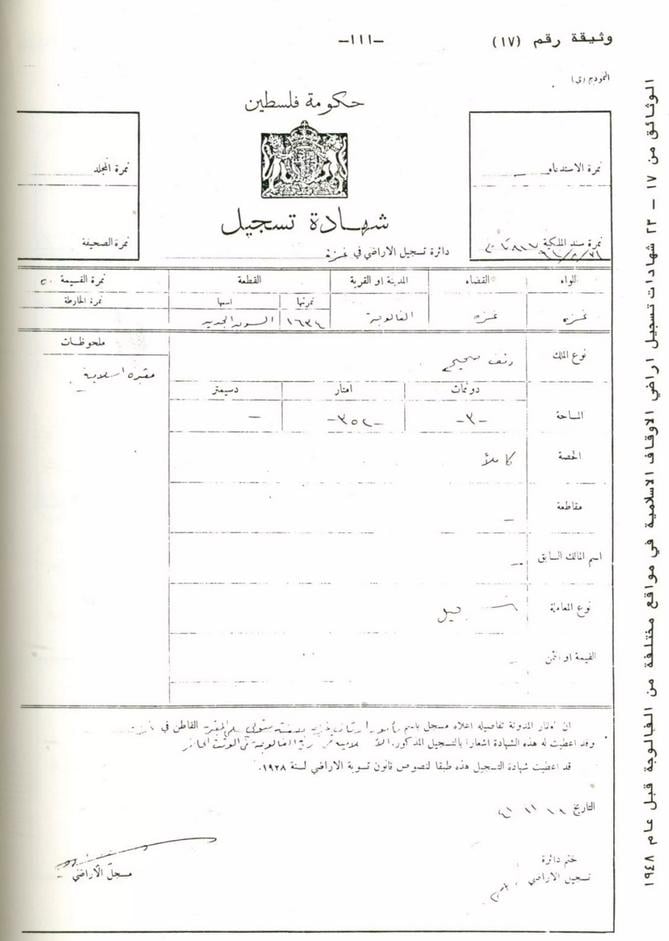 وثيقة رقم (١٧)
-١١١-
النموذج (ى)
حكومة فلسطين
شهادة تسجيل
دائرة تسجيل الاراضي في غزة
نمرة الاستدعاء
نمرة سند الملكية
نمرة المجلد
نمرة الصحيفة
اللواء القضاء المدينة او القرية القطعة نمرة القسيمة
نمرتها اسمها نمرة الخارطة
غزه غزه الفالوجة ١٦٣٤
ملحوظات
مقبرة اسلامية
نوع الملك وقف صحيح
دونمات امتار دسيمتر
المساحة -٣- -٣٥٢- -
الحصة كاملاً
مقاطعة -
اسم المالك السابق -
نوع المعاملة تسجيل
القيمة او الثمن -
المدونة تفاصيله اعلاه مسجل باسم القاطن في
وقد اعطيت له هذه الشهادة اشعارا بالتسجيل المذكور.
قد اعطيت شهادة التسجيل هذه طبقا لنصوص قانون تسوية الاراضي لسنة ١٩٢٨.
التاريخ
ختم دائرة
تسجيل الاراضي
مسجل الأراضي
الوثائق من ١٧ - ٢٣ شهادات تسجيل اراضي الاوقاف الاسلامية في مواقع مختلفة من الفالوجة قبل عام ١٩٤٨